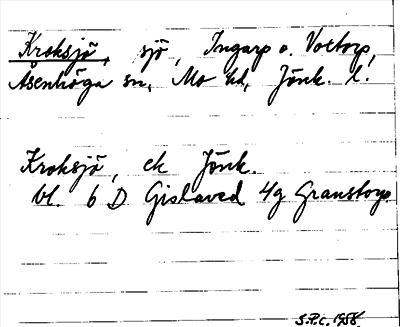 Kroksjö, sjö, Ingarp o. Voetorp,
Åsenhöga sn, Mo hd, Jönk. l.
Kroksjö, ek Jönk.
bl. 6 D Gislaved 4g Granstorp.
S.P.C. 1958